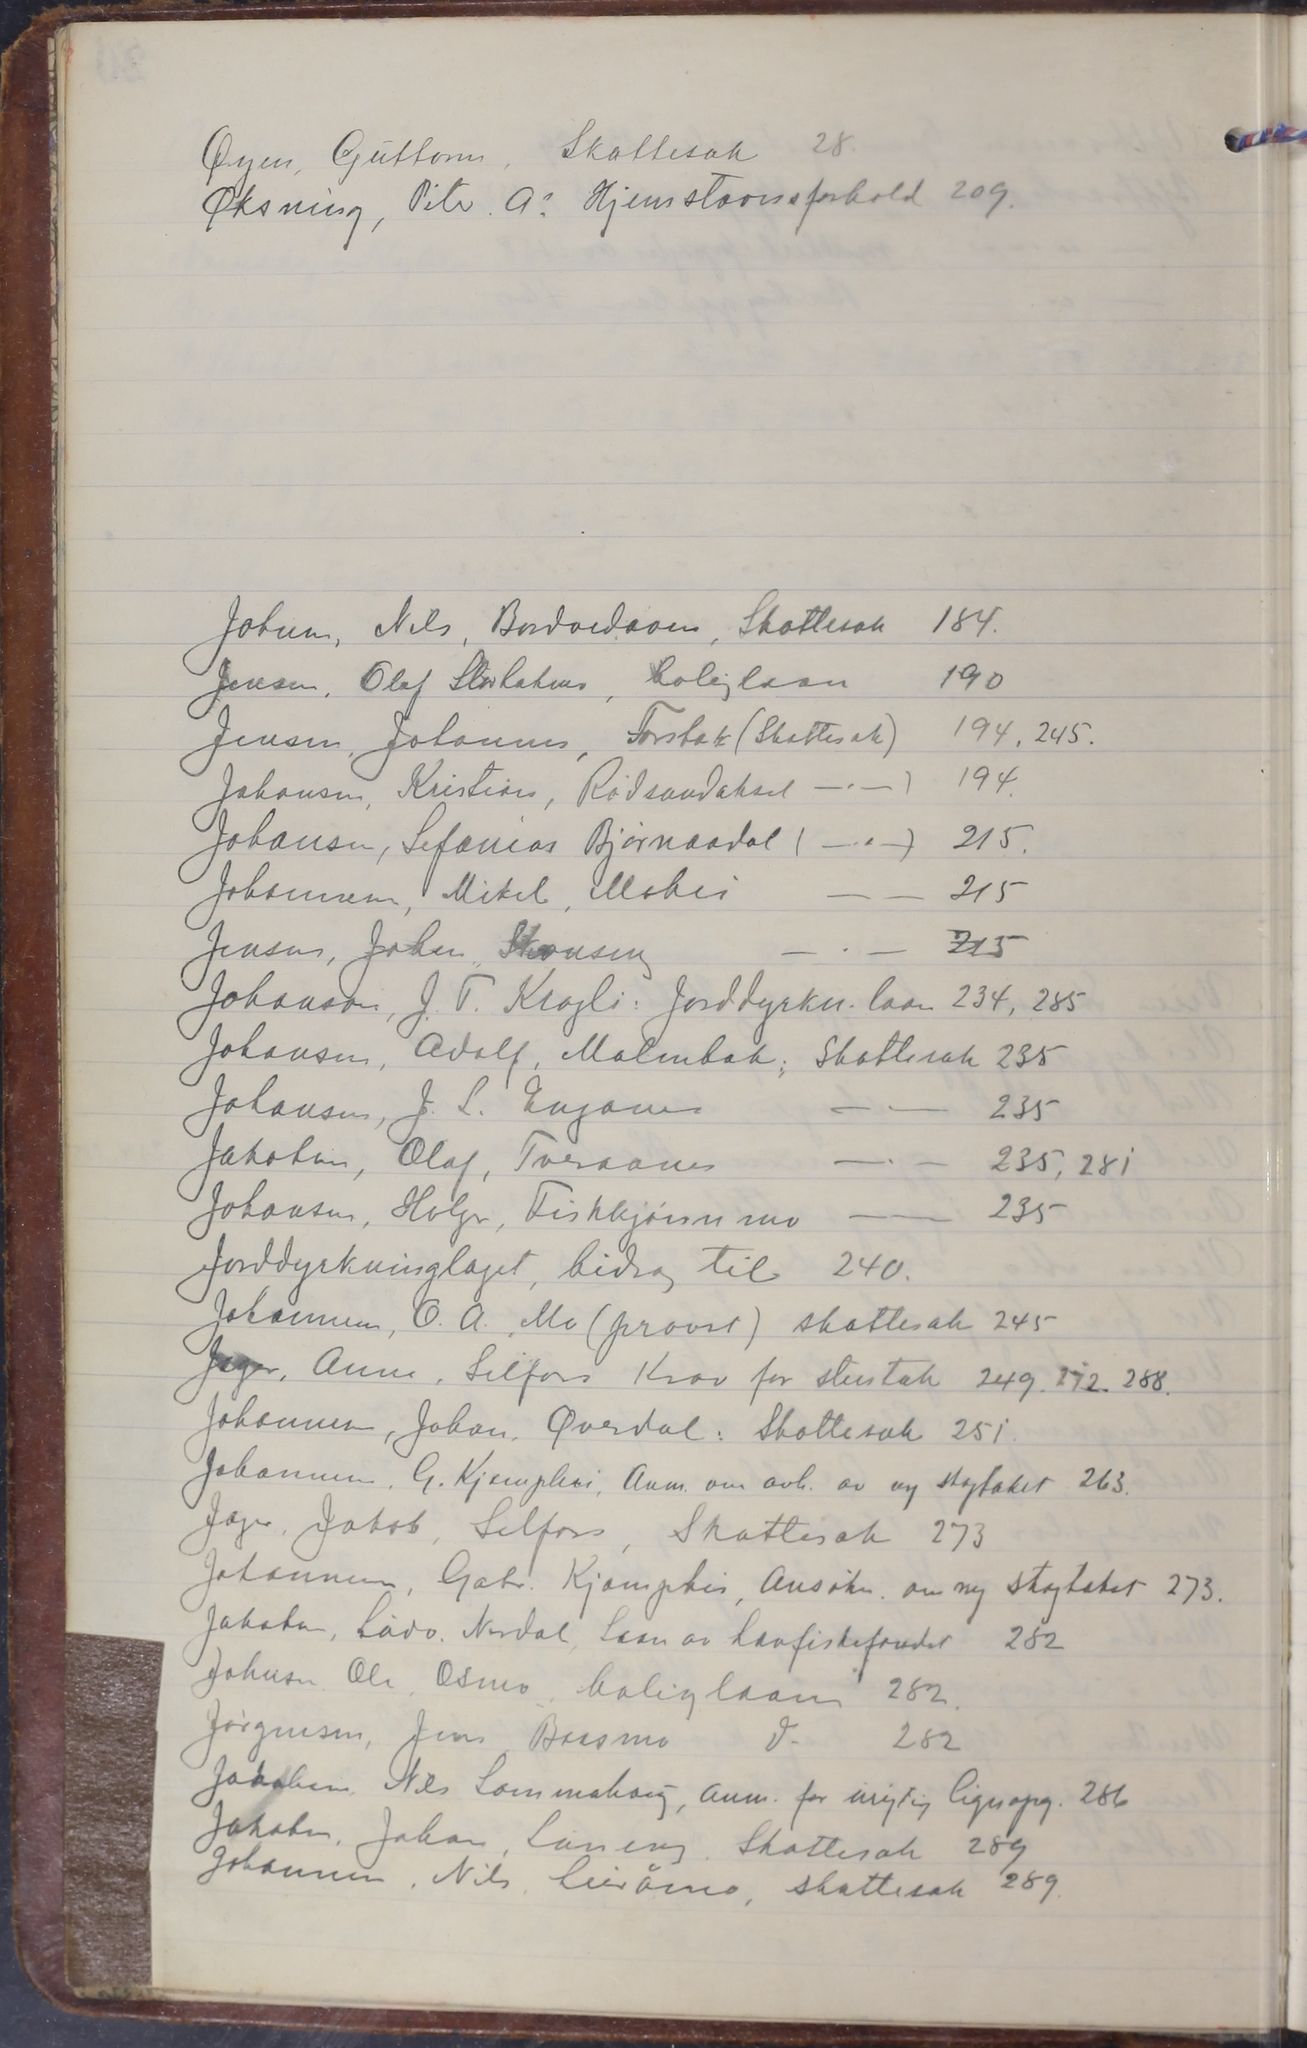 Øyen, Guttorm, Skattesak 28.
Øksning, Petr. A: Hjemstavnsforhold 209.
Johnsen, Nils, Bordvedaaen, Skattesak 184.
Jensen, Olaf Storbakmo, boliglaan 190
Jensen, Johannes, Forsbak (Skattesak) 194, 245.
Johansen, Kristian, Rødsandaksel —"—) 194.
Johansen, Sefanias Bjørnaadal ( —"—) 215.
Johannesen, Mikal, Mobei — — 215
Jensen, Johan, — " — 215
Johanson, J. T. Kragli: Jorddyrkn. laan 234, 285
Johansen, Adolf, Malmbak; Skattesak 235
Johansen, J. L. Enganes — " — 235
Jakobsen, Olaf, Tveraanes — " — 235, 281
Johansen, Holger, Fiskkjønnmo — — 235
Jorddyrkninglaget, bidrag til 240.
Johannesen, O. A., Mo (provst) skattesak 245
Jæger, Anne, Selfors Krav for stentak 249. 272. 288.
Johannesen, Johan, Øverdal: Skattesak 251.
Johannesen, G. Kjømphei, Anm. om avh. av ny skogtakst 263.
Jæger, Jakob, Selfors, Skattesak 273
Johannesen, Gabr. Kjømphei, Ansøkn. om ny skogtakst 273.
Jakobsen, Ludv. Nerdal, Laan av havfiskefondet 282
Johnsen Ole, Osmo, boliglaan 282.
Jørgensen, Jens Baasmo d- 282
Jakobsen, Nils Lammehaug, anm. for urigtig lignopg. 286
Jakobsen, Johan, Skattesak 289
Johannesen, Nils, Leiråmo, skattesak 289.